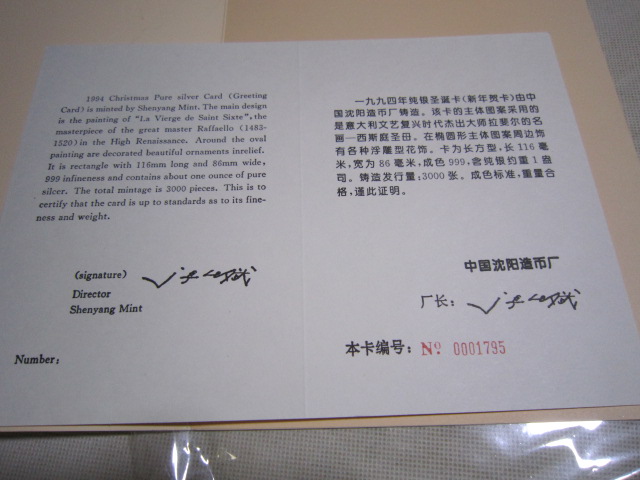 1994 Christmas Pure silver Card (Greeting
Card) is minted by Shenyang Mint. The main design
is the painting of "La Vierge de Saint Sixte", the
masterpiece of the great master Raffaello (1483-
1520) in the High Renaissance. Around the oval
painting are decorated beautiful ornaments inrelief.
It is rectangle with 116mm long and 86mm wide,
999 infineness and contains about one ounce of pure
silver. The total mintage is 3000 pieces. This is to
certify that the card is up to standards as to its fine-
ness and weight.
(signature)
Director
Shenyang Mint
Number:
一九九四年纯银圣诞卡(新年贺卡)由中
国沈阳造币厂铸造。该卡的主体图案采用的
是意大利文艺复兴时代杰出大师拉斐尔的名
画—西斯庭圣母。在椭圆形主体图案周边饰
有各种浮雕型花饰。卡为长方型,长 116 毫
米,宽为 86 毫米,成色 999,含纯银约重 1 盎
司。铸造发行量:3000 张。成色标准,重量合
格,谨此证明。
中国沈阳造币厂
厂长:
本卡编号: № 0001795